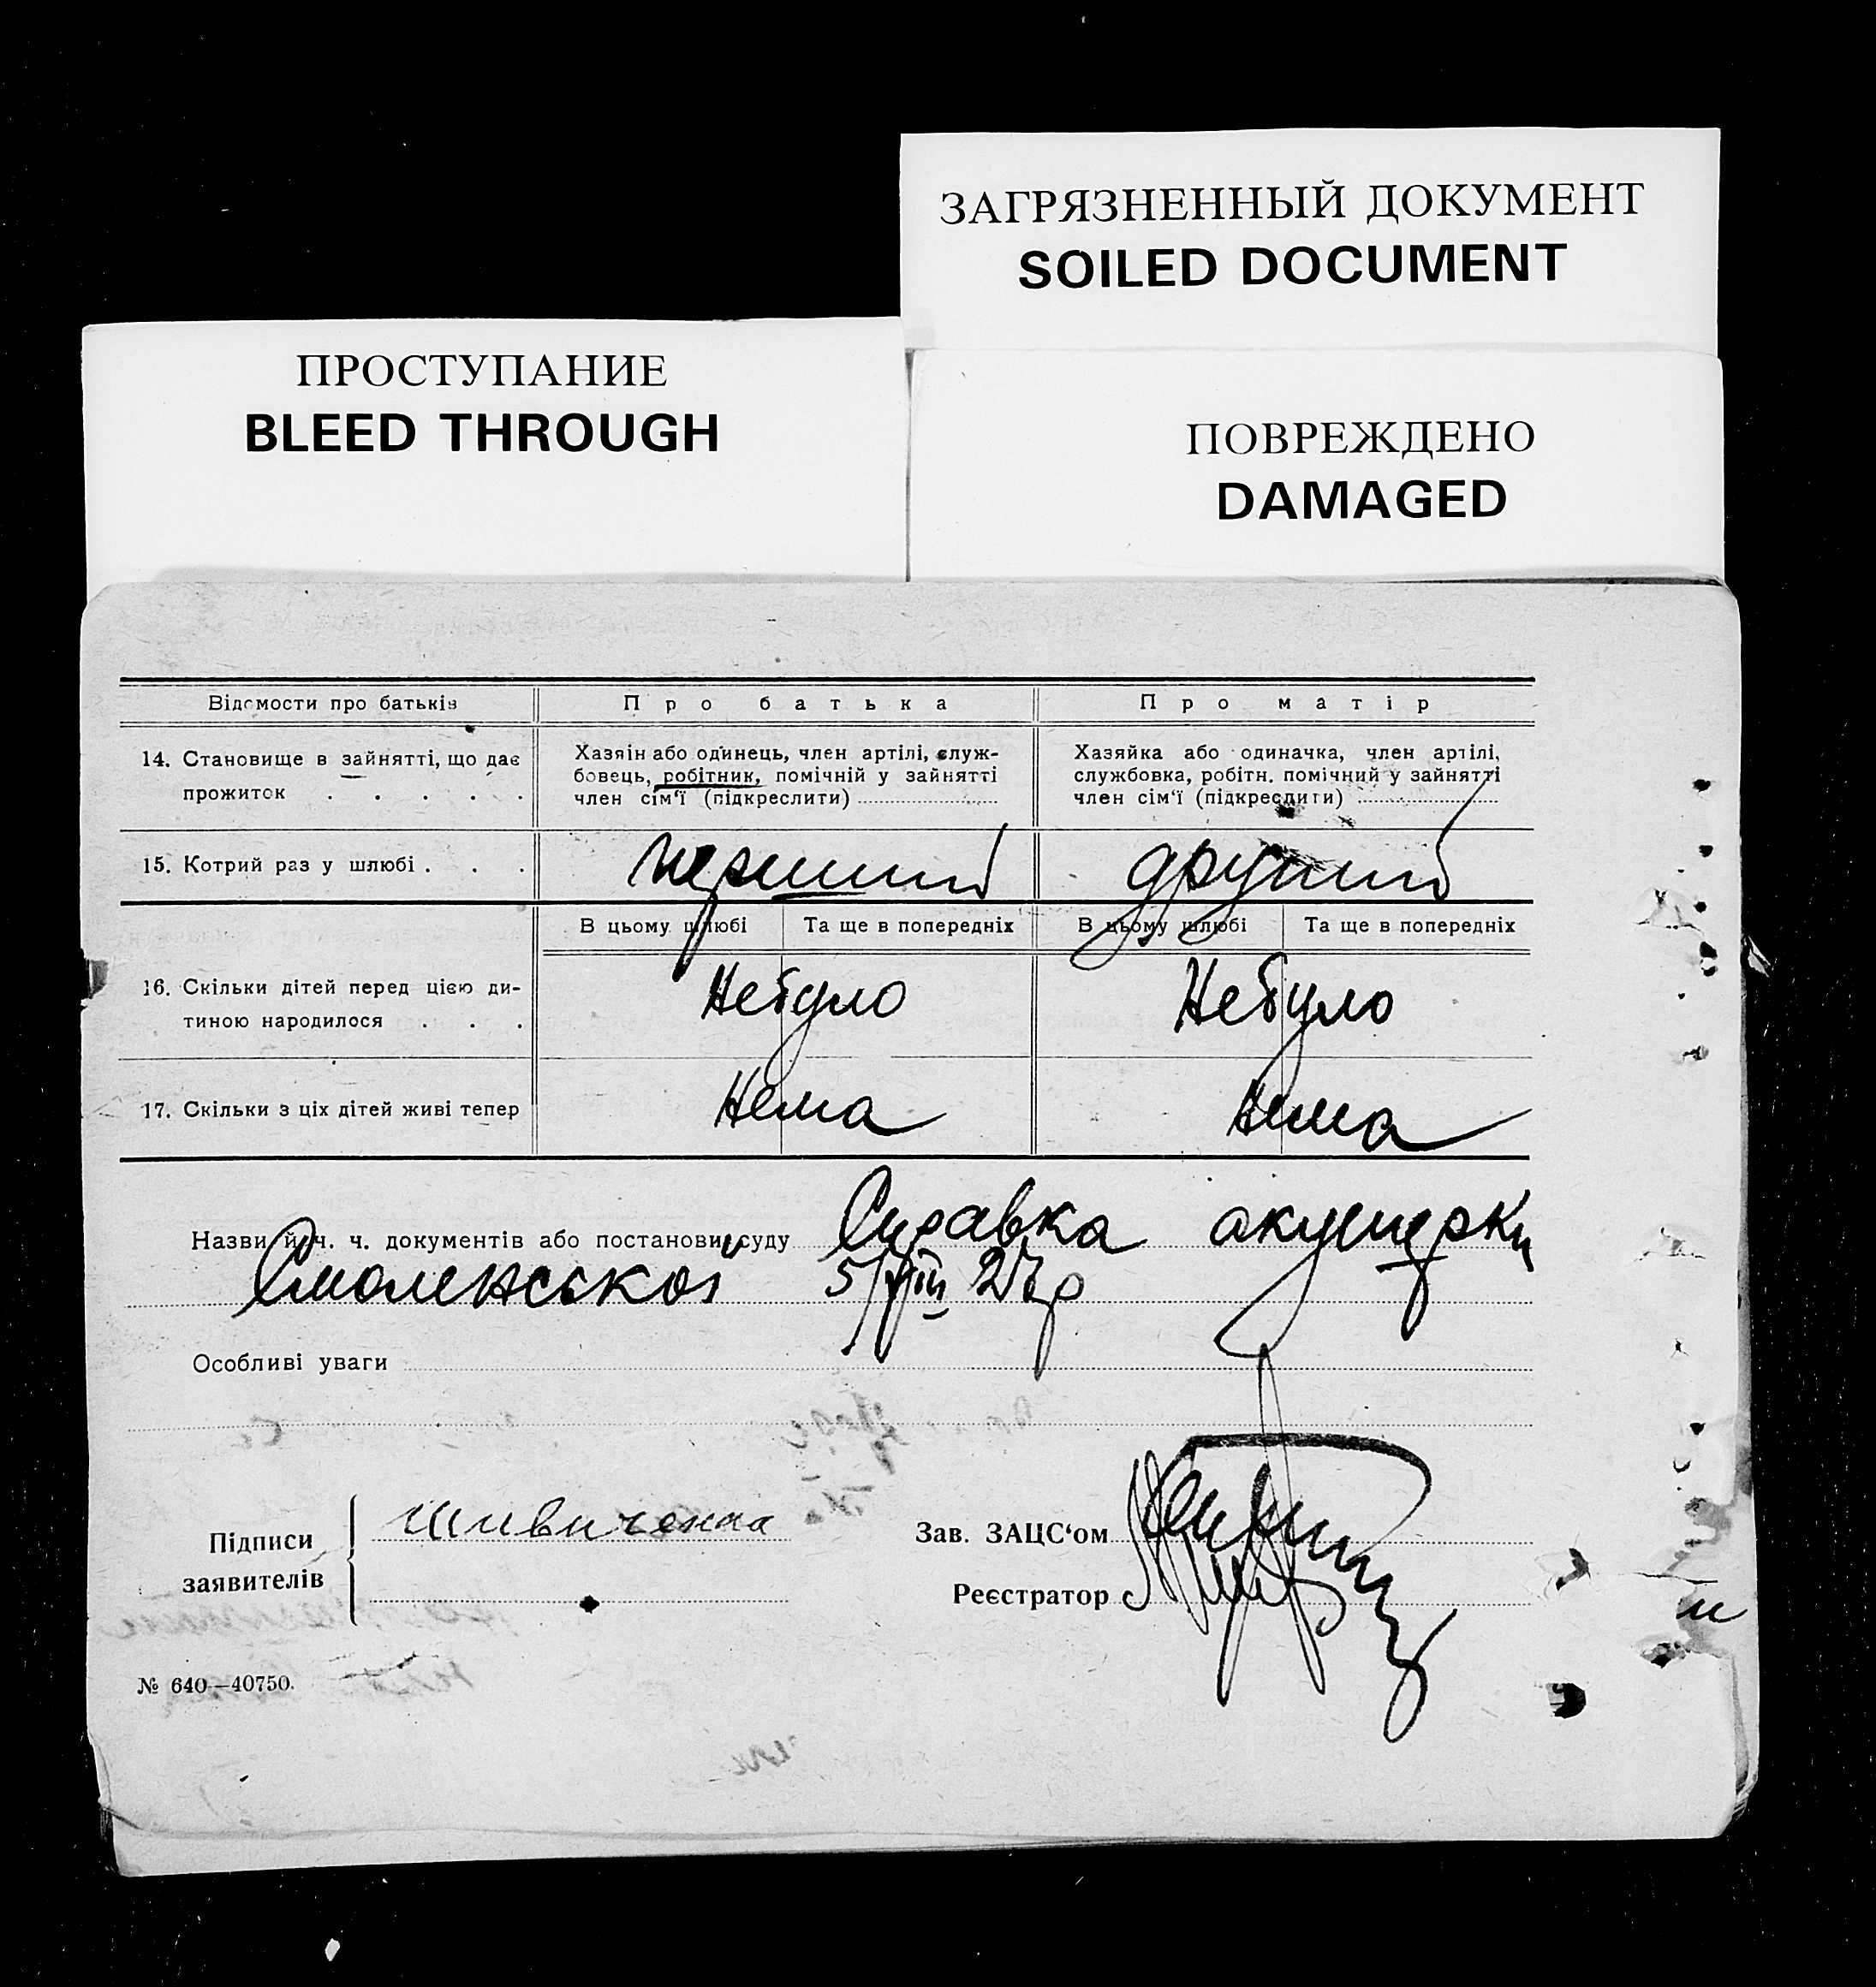 ЗАГРЯЗНЕННЫЙ ДОКУМЕНТ
SOILED DOCUMENT
ПРОСТУПАНИЕ
BLEED THROUGH
ПОВРЕЖДЕНО
DAMAGED
Відомости про батьків
Про батька
Про матір
14. Становище в зайнятті, що дає
прожиток . . . . .
Хазяін або одинець, член артілі, служ-
бовець, робітник, помічній у зайнятті
член сім‘ї (підкреслити)
Хазяйка або одиначка, член артілі,
службовка, робітн. помічний у зайнятті
член сім‘ї (підкреслити)
15. Котрий раз у шлюбі . . .
перший
другий
В цьому шлюбі
Та ще в попередніх
В цьому шлюбі
Та ще в попередніх
16. Скільки дітей перед цією ди-
тиною народилося . . .
Небуло
Небуло
17. Скільки з ціх дітей живі тепер
Нема
Нема
Назви й ч. ч. документів або постанови суду Справка акушерки
Смоленської 5/VIII 27р
Особливі уваги
Підписи
заявителів
Зав. ЗАЦС‘ом
Реєстратор
№ 640—40750.